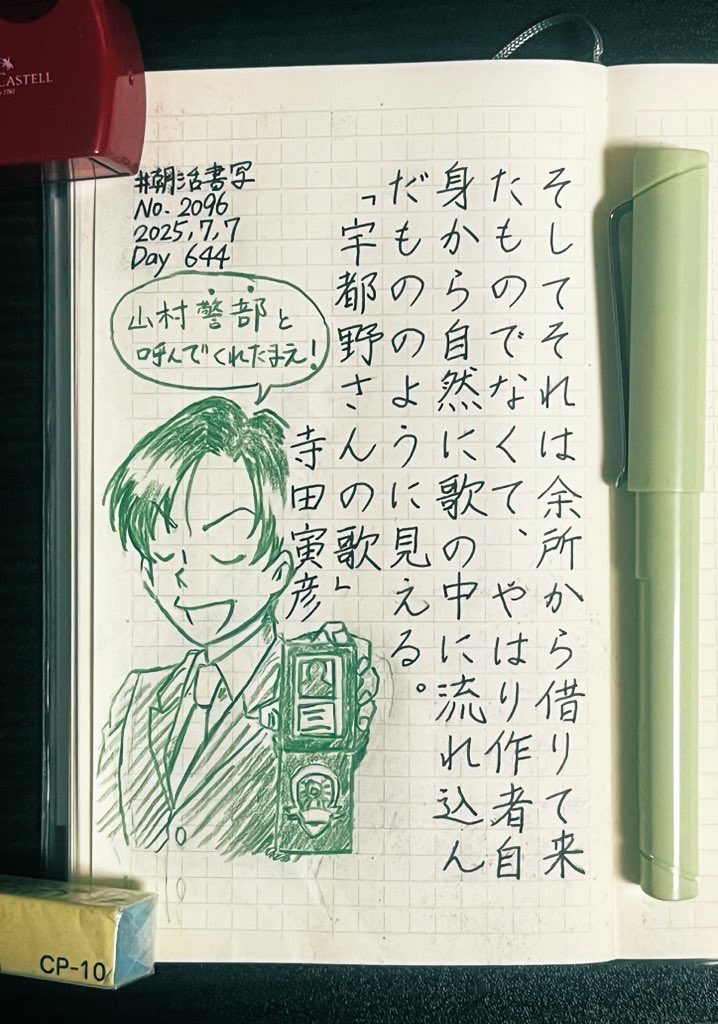 CASTELL
#朝活書写
No. 2096
2025,7,7
Day 644
山村警部と
呼んでくれたまえ!
そしてそれは余所から借りて来
たものでなくて、やはり作者自
身から自然に歌の中に流れ込ん
だもののように見える。
「宇都野さんの歌」
寺田寅彦
CP-10